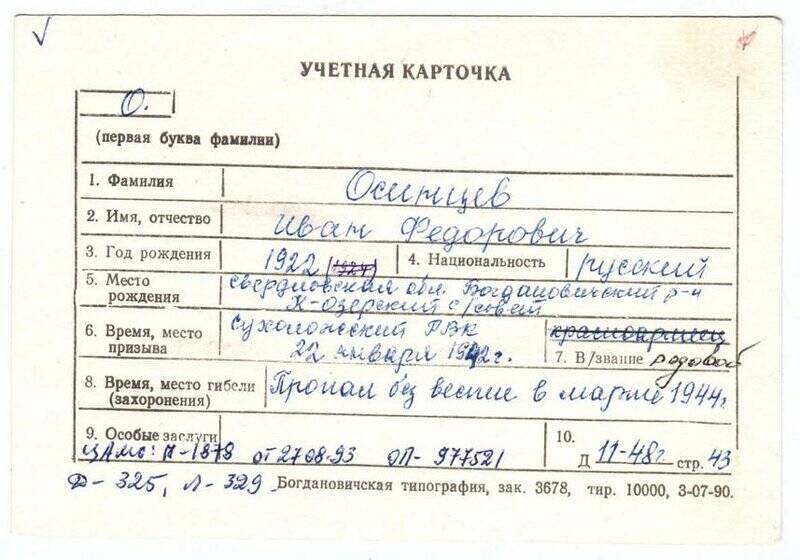 УЧЕТНАЯ КАРТОЧКА
О.
(первая буква фамилии)
1. Фамилия Осинцев
2. Имя, отчество Иван Федорович
3. Год рождения 1922 (1924) 4. Национальность русский
5. Место рождения Свердловская обл. Богдановичский р-н
К-озерский с/совет
6. Время, место призыва Сухоложский РВК
22 января 1942г.
красноармеец
7. В/звание рядовой
8. Время, место гибели (захоронения) Пропал без вести в марте 1944г.
9. Особые заслуги
ЦАМО: П-1878 от 27.08.93 ОП- 977521
10.
Д 11-48г стр. 43
Ф- 325, Л- 329 Богдановичская типография, зак. 3678, тир. 10000, 3-07-90.